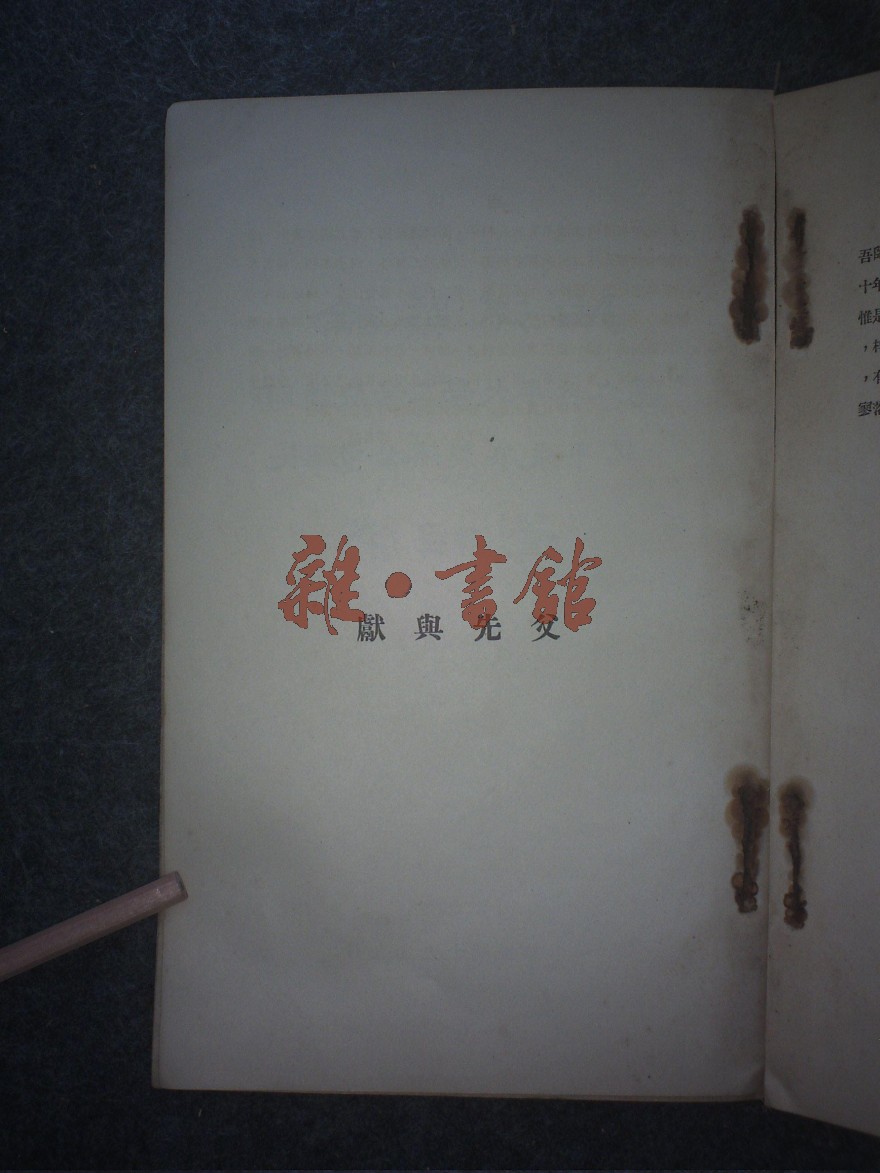 雜·書館
獻與先父
吾
十年
惟是
，
，
寥